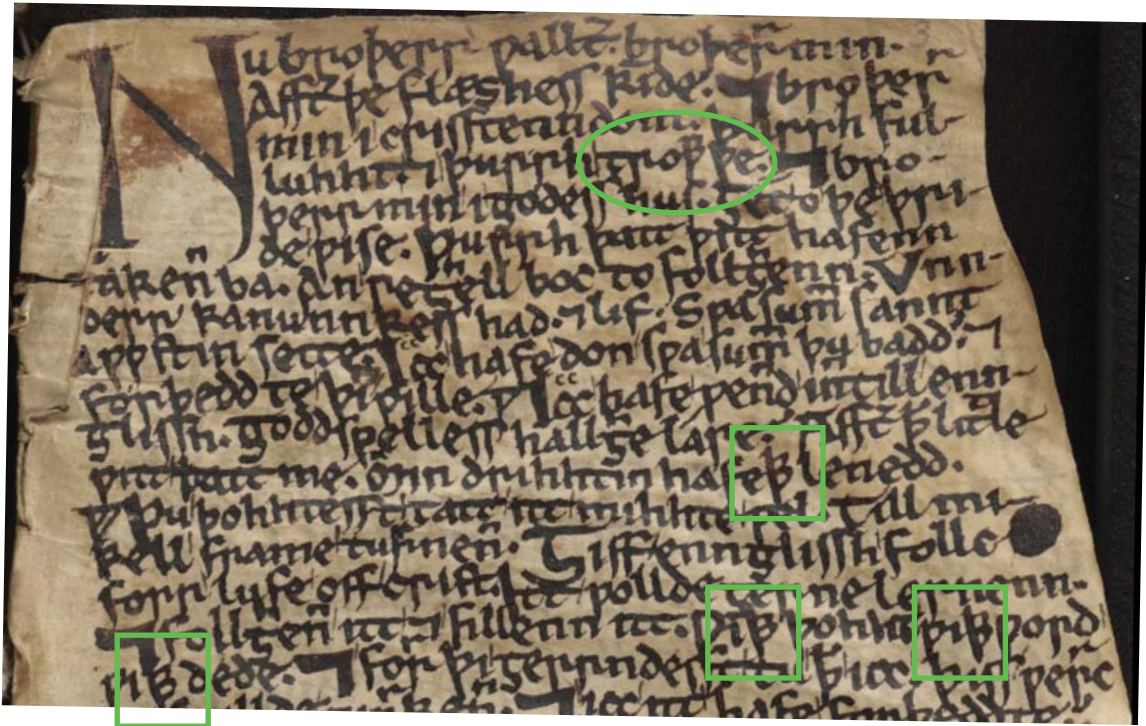 Nu broþerr ƿallt̄. broþer̄ min.
Afft̄ þe flæshess kide. ⁊ broþer̄
min i crisstenndom. þurrh ful-
luhht. ⁊ þurrh troƿƿþe. ⁊ bro-
þerr min i godess hus. ȝet o þe þri-
de ƿise. þurrh þatt ƿitt hafenn
takeñ ba. An reȝhell boc to follȝhenn. Vnn-
derr kanunnkess had. ⁊ lif. Sƿa sum̄ sannt
aƿƿstin sette. Icc hafe don sƿa sum̄ þu badd. ⁊
forþedd te þi ƿille. Icc hafe ƿeñd inntill enn-
glissh. goddspelless hallȝhe lare. Afft̄ þ litle
ƿitt þatt me. min drihhtin hafeþþ lenedd.
⁊ þu þohhtesst tatt itt mihhte ƿel. Till mi-
kell frame turrneñ. ȝiff ennglissh follc
forr lufe off crist. Itt ƿollde ȝerne lernenn.
⁊ follȝheñ itt. ⁊ fillenn itt. ƿiþþ þohht ƿiþþ ƿord
ƿiþþ dede. ⁊ forþi ȝerrndesst tu. þ icc þiss ƿerrc